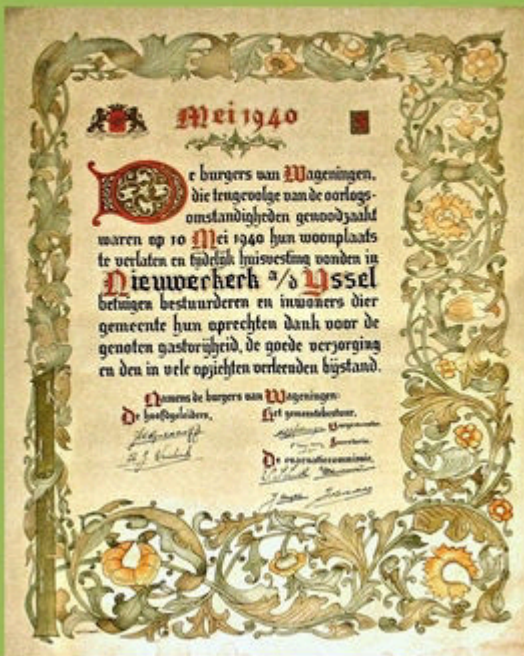 Mei 1940
De burgers van Wageningen,
die tengevolge van de oorlogs-
omstandigheden genoodzaakt
waren op 10 Mei 1940 hun woonplaats
te verlaten en tijdelijk huisvesting vonden in
Nieuwerkerk a/d Yssel
betuigen bestuurderen en inwoners dier
gemeente hun oprechten dank voor de
genoten gastvrijheid, de goede verzorging
en den in vele opzichten verleenden bijstand.
Namens de burgers van Wageningen:
De hoofdgeleiders,
Het gemeentebestuur,
Burgemeester
Secretaris
De evacuatiecommissie,